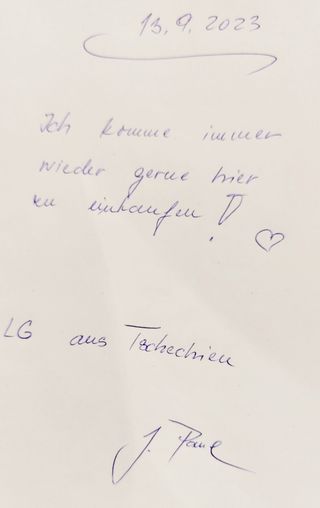 13. 9. 2023
Ich komme immer
wieder gerne hier
zu einkaufen!
LG aus Tschechien
J.